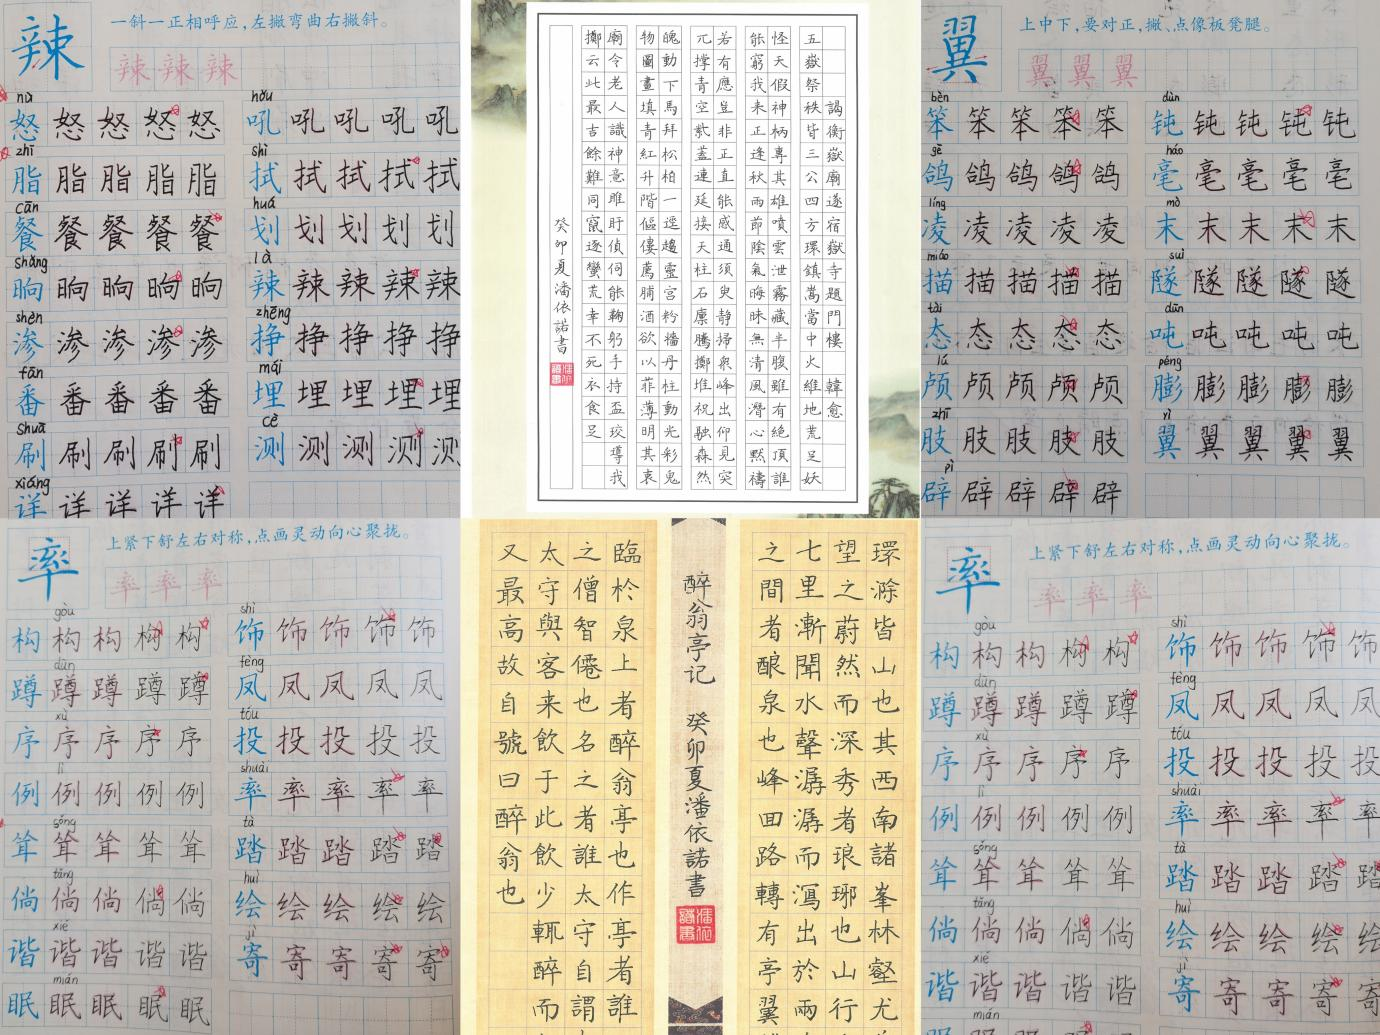 辣
一斜一正相呼应,左撇弯曲右撇斜。
辣 辣 辣
nù
怒 怒 怒 怒 怒
zhī
脂 脂 脂 脂 脂
cān
餐 餐 餐 餐 餐
shǎng
晌 晌 晌 晌 晌
shèn
渗 渗 渗 渗 渗
fān
番 番 番 番 番
shuā
刷 刷 刷 刷 刷
xiáng
详 详 详 详 详
hǒu
吼 吼 吼 吼 吼
shì
拭 拭 拭 拭 拭
huá
划 划 划 划 划
là
辣 辣 辣 辣 辣
zhēng
挣 挣 挣 挣 挣
mái
埋 埋 埋 埋 埋
cè
测 测 测 测 测
謁衡嶽廟遂宿嶽寺題門樓 韓愈
五嶽祭秩皆三公四方環鎮嵩當中火維地荒足妖
怪天假神柄專其雄噴雲泄霧藏半腹雖有絕頂誰
能窮我来正逢秋雨節陰氣晦昧無清風潛心默禱
若有應豈非正直能感通須臾靜掃衆峰出仰見突
兀撑青空紫蓋連延接天柱石廩騰擲堆祝融森然
魄動下馬拜松柏一逕趨靈宮粉牆丹柱動光彩鬼
物圖畫填青紅升階傴僂薦脯酒欲以菲薄明其衷
廟令老人識神意睢盱偵伺能鞠躬手持盃珓導我
擲云此最吉餘難同竄逐蠻荒幸不死衣食足
癸卯夏潘依諾書
翼
上中下,要对正,撇、点像板凳腿。
翼 翼 翼
bèn
笨 笨 笨 笨 笨
gē
鸽 鸽 鸽 鸽 鸽
líng
凌 凌 凌 凌 凌
miáo
描 描 描 描 描
tài
态 态 态 态 态
lú
颅 颅 颅 颅 颅
zhī
肢 肢 肢 肢 肢
pì
辟 辟 辟 辟 辟
dùn
钝 钝 钝 钝 钝
háo
毫 毫 毫 毫 毫
mò
末 末 末 末 末
suì
隧 隧 隧 隧 隧
dūn
吨 吨 吨 吨 吨
péng
膨 膨 膨 膨 膨
yì
翼 翼 翼 翼 翼
率
上紧下舒左右对称,点画灵动向心聚拢。
率 率 率
gòu
构 构 构 构 构
dūn
蹲 蹲 蹲 蹲 蹲
xù
序 序 序 序 序
lì
例 例 例 例 例
sǒng
耸 耸 耸 耸 耸
tǎng
倘 倘 倘 倘 倘
xié
谐 谐 谐 谐 谐
mián
眠 眠 眠 眠 眠
shì
饰 饰 饰 饰 饰
fèng
凤 凤 凤 凤 凤
tóu
投 投 投 投 投
shuài
率 率 率 率 率
tà
踏 踏 踏 踏 踏
huì
绘 绘 绘 绘 绘
jì
寄 寄 寄 寄 寄
環滁皆山也其西南諸峯林壑尤
望之蔚然而深秀者琅琊也山行
七里漸聞水聲潺潺而瀉出於兩
之間者釀泉也峰回路轉有亭翼
醉翁亭记 癸卯夏潘依諾書
臨於泉上者醉翁亭也作亭者誰
之僧智僊也名之者誰太守自謂
太守與客来飲于此飲少輒醉而
又最高故自號曰醉翁也
率
上紧下舒左右对称,点画灵动向心聚拢。
率 率 率
gòu
构 构 构 构 构
dūn
蹲 蹲 蹲 蹲 蹲
xù
序 序 序 序 序
lì
例 例 例 例 例
sǒng
耸 耸 耸 耸 耸
tǎng
倘 倘 倘 倘 倘
xié
谐 谐 谐 谐 谐
mián
shì
饰 饰 饰 饰 饰
fèng
凤 凤 凤 凤 凤
tóu
投 投 投 投 投
shuài
率 率 率 率 率
tà
踏 踏 踏 踏 踏
huì
绘 绘 绘 绘 绘
jì
寄 寄 寄 寄 寄